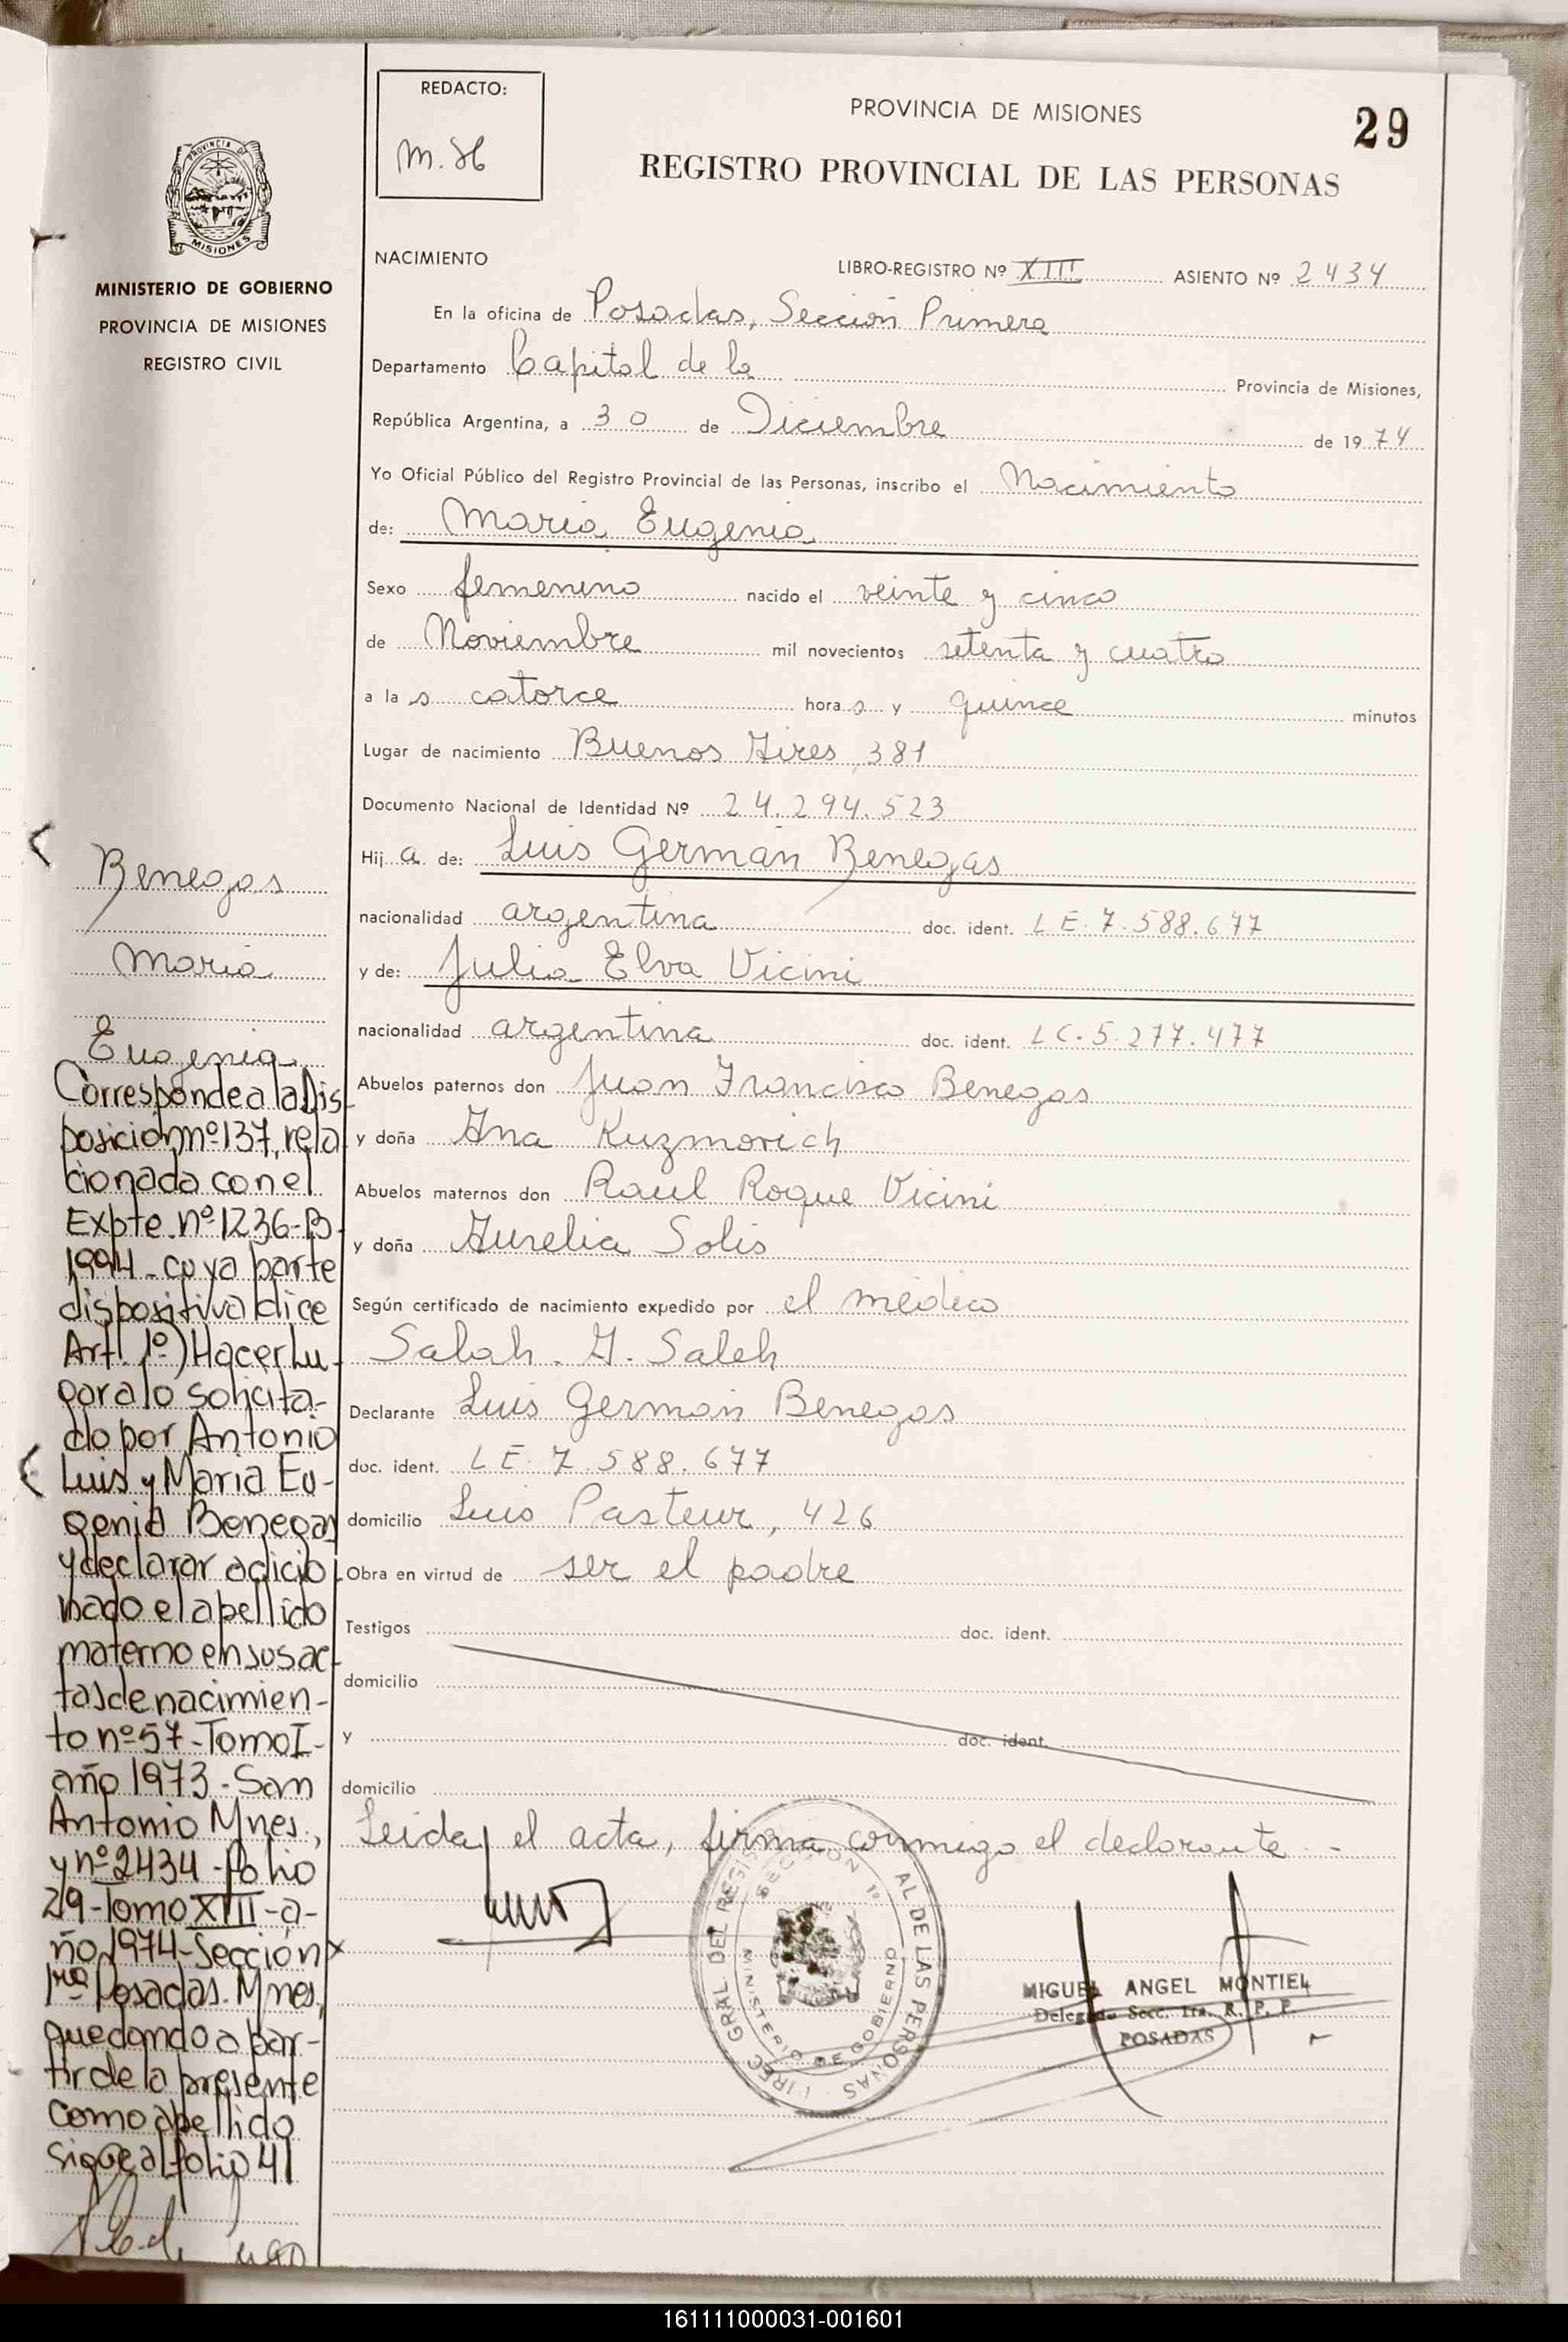 REDACTO:
m. H
PROVINCIA DE MISIONES
29
REGISTRO PROVINCIAL DE LAS PERSONAS
PROVINCIA DE
MISIONES
MINISTERIO DE GOBIERNO
PROVINCIA DE MISIONES
REGISTRO CIVIL
NACIMIENTO
LIBRO-REGISTRO Nº XIII ASIENTO Nº 2434
En la oficina de Posadas, Sección Primera
Departamento Capital de la Provincia de Misiones,
República Argentina, a 30 de Diciembre de 1974
Yo Oficial Público del Registro Provincial de las Personas, inscribo el Nacimiento
de: Maria Eugenia
Sexo femenino nacido el veinte y cinco
de Noviembre mil novecientos setenta y cuatro
a las catorce horas y quince minutos
Lugar de nacimiento Buenos Aires, 381
Documento Nacional de Identidad Nº 24.294.523
Hija de: Luis Germán Benegas
nacionalidad argentina doc. ident. L E. 7.588.677
y de: Julia Elva Vicini
nacionalidad argentina doc. ident. L C. 5.277.477
Abuelos paternos don Juan Francisco Benegas
y doña Ana Kuzmovich
Abuelos maternos don Raúl Roque Vicini
y doña Aurelia Solis
Según certificado de nacimiento expedido por el médico
Salah. A. Saleh
Declarante Luis Germán Benegas
doc. ident. L E. 7.588.677
domicilio Luis Pasteur, 426
Obra en virtud de ser el padre
Testigos doc. ident.
domicilio
y doc. ident.
domicilio
Leida el acta, firma conmigo el declarante.-
MIGUEL ANGEL MONTIEL
Delegado Secc. 1ra. R. P. P.
POSADAS
SECCION 1º
MINISTERIO DE GOBIERNO
Benegas
Maria
Eugenia
Corresponde a la Dis-
posición nº 137, rela-
cionada con el
Expte. nº 1236-B-
1994 - cuya parte
dispositiva dice
Art. 1º) Hacer Lu-
gar a lo solicita-
do por Antonio
Luis y Maria Eu-
genia Benegas
y declarar adicio-
nado el apellido
materno en sus ac-
tas de nacimien-
to nº 57 - Tomo I -
año 1973 - San
Antonio Mnes.,
y nº 2434 - folio
29 - Tomo XIII - a-
ño 1974 - Sección
1ra Posadas. Mnes,
quedando a par-
tir de la presente
como apellido
sigue al folio 41
161111000031-001601